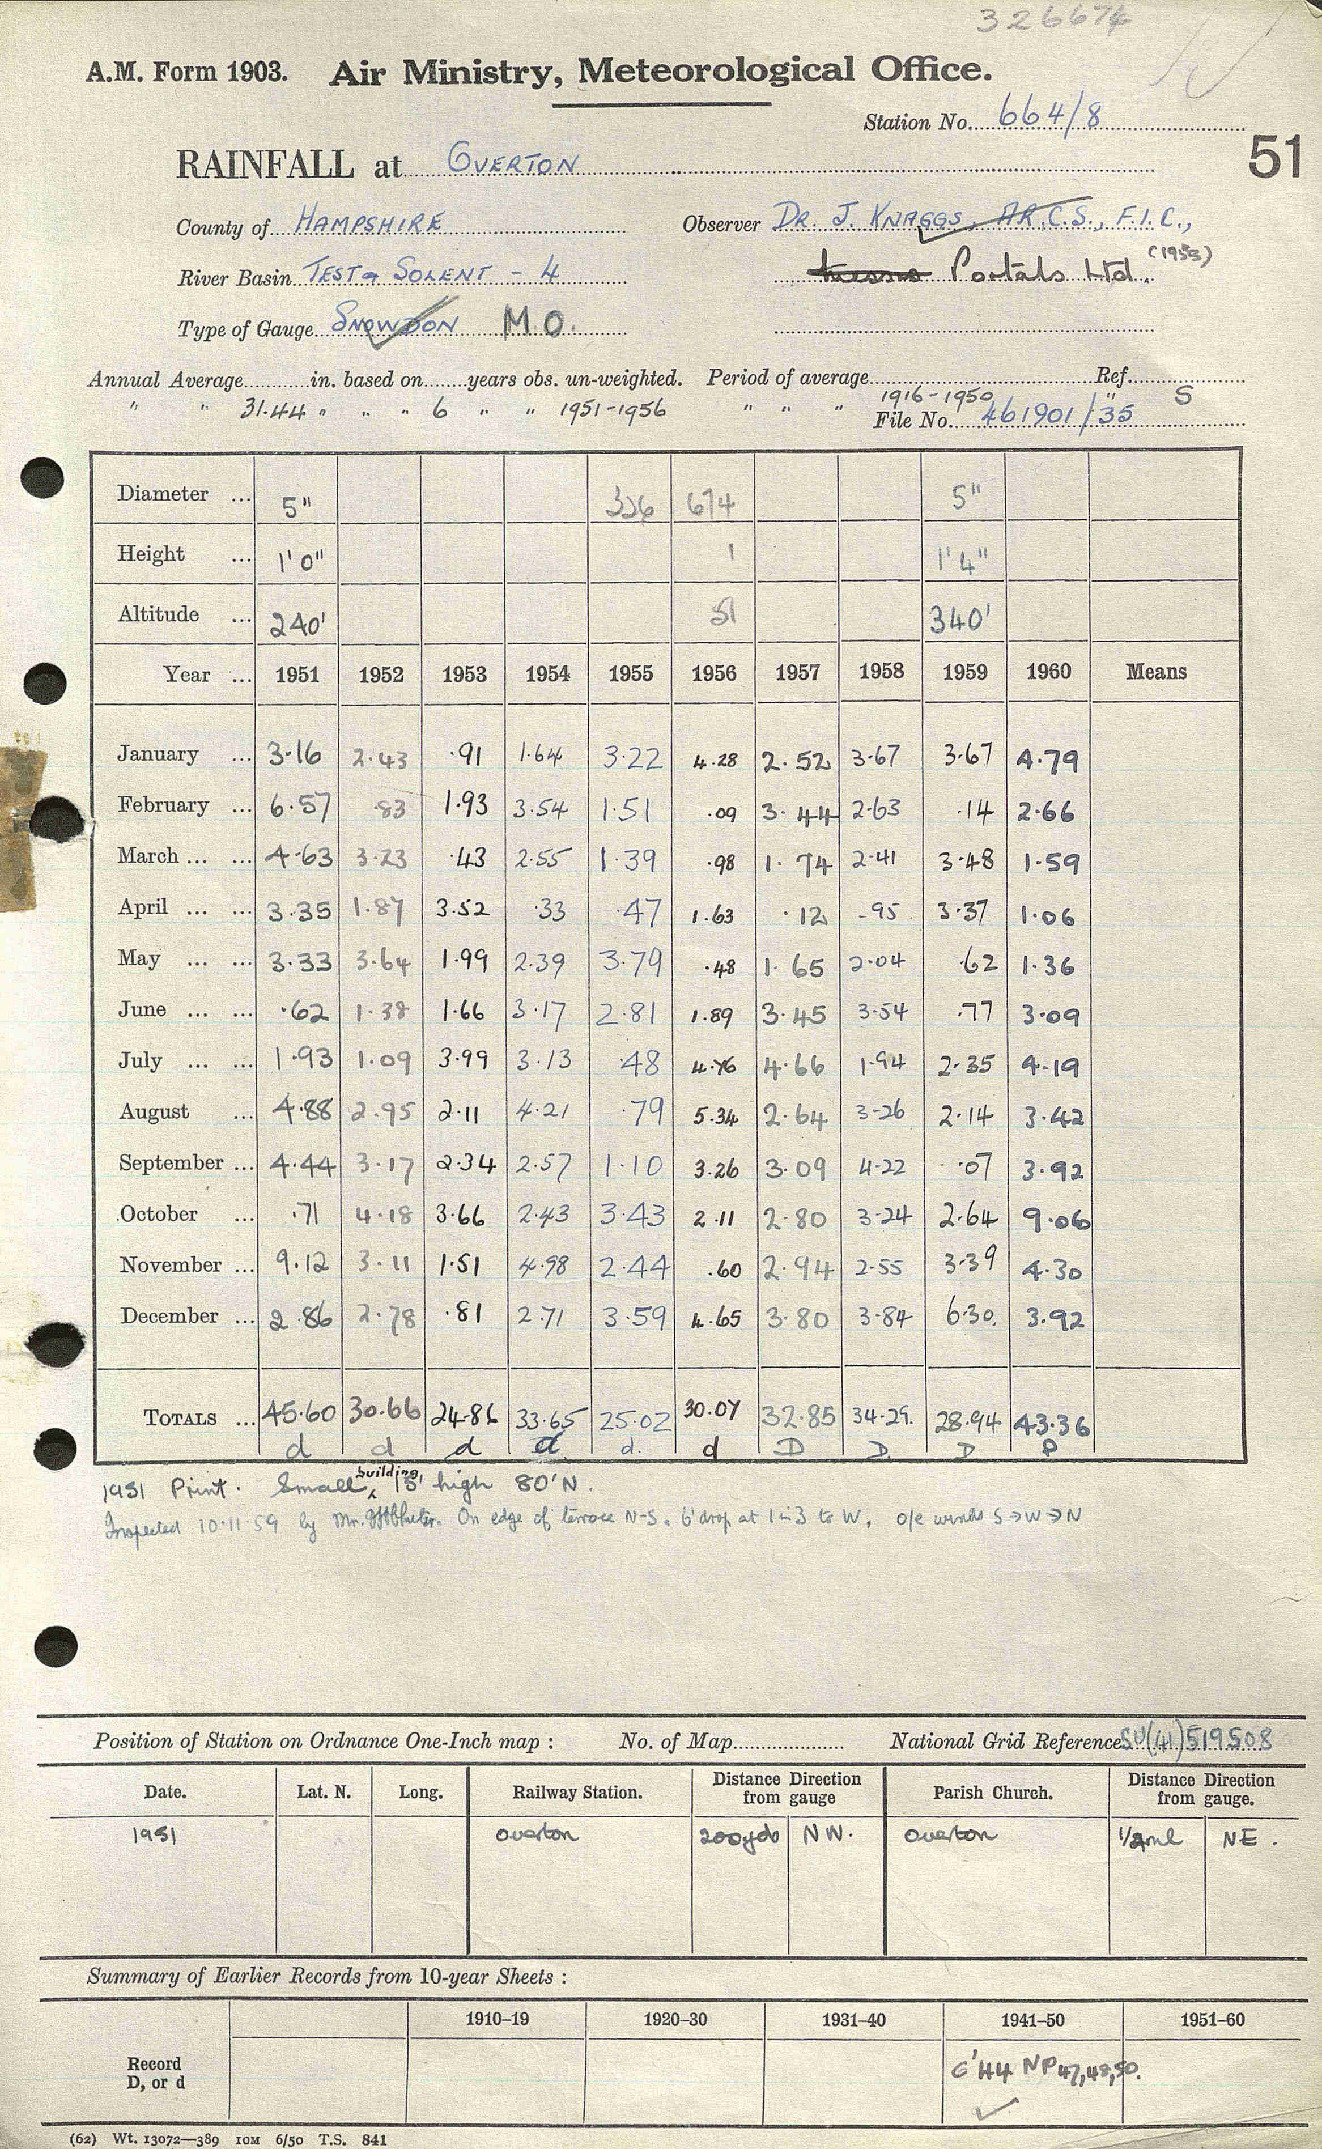 326674
A.M. Form 1903. Air Ministry, Meteorological Office.
Station No. 664/8
51
RAINFALL at OVERTON
County of HAMPSHIRE Observer DR. J. KNAGGS, A.R.C.S., F.I.C.,
River Basin TEST & SOLENT - 4 Portals Ltd. (1955)
Type of Gauge SNOWDON M.O.
Annual Average in. based on years obs. un-weighted. Period of average Ref.
" " 31.44 " " " 6 " " 1951-1956 " " " 1916-1950 " S
File No. 461901/35
Diameter ... 5" 326 674 5"
Height ... 1'0" 1 1'4"
Altitude ... 240' 51 340'
Year ... 1951 1952 1953 1954 1955 1956 1957 1958 1959 1960 Means
January ... 3.16 2.43 .91 1.64 3.22 4.28 2.52 3.67 3.67 4.79
February ... 6.57 .83 1.93 3.54 1.51 .09 3.44 2.63 .14 2.66
March ... ... 4.63 3.23 .43 2.55 1.39 .98 1.74 2.41 3.48 1.59
April ... ... 3.35 1.87 3.52 .33 .47 1.63 .12 .95 3.37 1.06
May ... ... 3.33 3.64 1.99 2.39 3.79 .48 1.65 2.04 .62 1.36
June ... ... .62 1.38 1.66 3.17 2.81 1.89 3.45 3.54 .77 3.09
July ... ... 1.93 1.09 3.99 3.13 .48 4.76 4.66 1.94 2.35 4.19
August ... 4.88 2.95 2.11 4.21 .79 5.34 2.64 3.26 2.14 3.42
September ... 4.44 3.17 2.34 2.57 1.10 3.26 3.09 4.22 .07 3.92
October ... .71 4.18 3.66 2.43 3.43 2.11 2.80 3.24 2.64 9.06
November ... 9.12 3.11 1.51 4.98 2.44 .60 2.94 2.55 3.39 4.30
December ... 2.86 2.78 .81 2.71 3.59 4.65 3.80 3.84 6.30. 3.92
TOTALS ... 45.60 30.66 24.86 33.65 25.02 30.07 32.85 34.29. 28.94 43.36
d d d d d. d D D. D P
1951 Print. Small building 15' high 80'N.
Inspected 10.11.59 by Mr. On edge of terrace N-S. 6' drop at 1 in 3 to W. o/e winds S→W→N
Position of Station on Ordnance One-Inch map : No. of Map National Grid Reference SU(41)519508
Date. Lat. N. Long. Railway Station. Distance Direction from gauge Parish Church. Distance Direction from gauge.
1951 Overton 200yds NW. Overton 1/2 ml NE.
Summary of Earlier Records from 10-year Sheets :
1910–19 1920–30 1931–40 1941–50 1951–60
Record D, or d C'44 NP 47,48,50.
(62) Wt. 13072—389 10M 6/50 T.S. 841